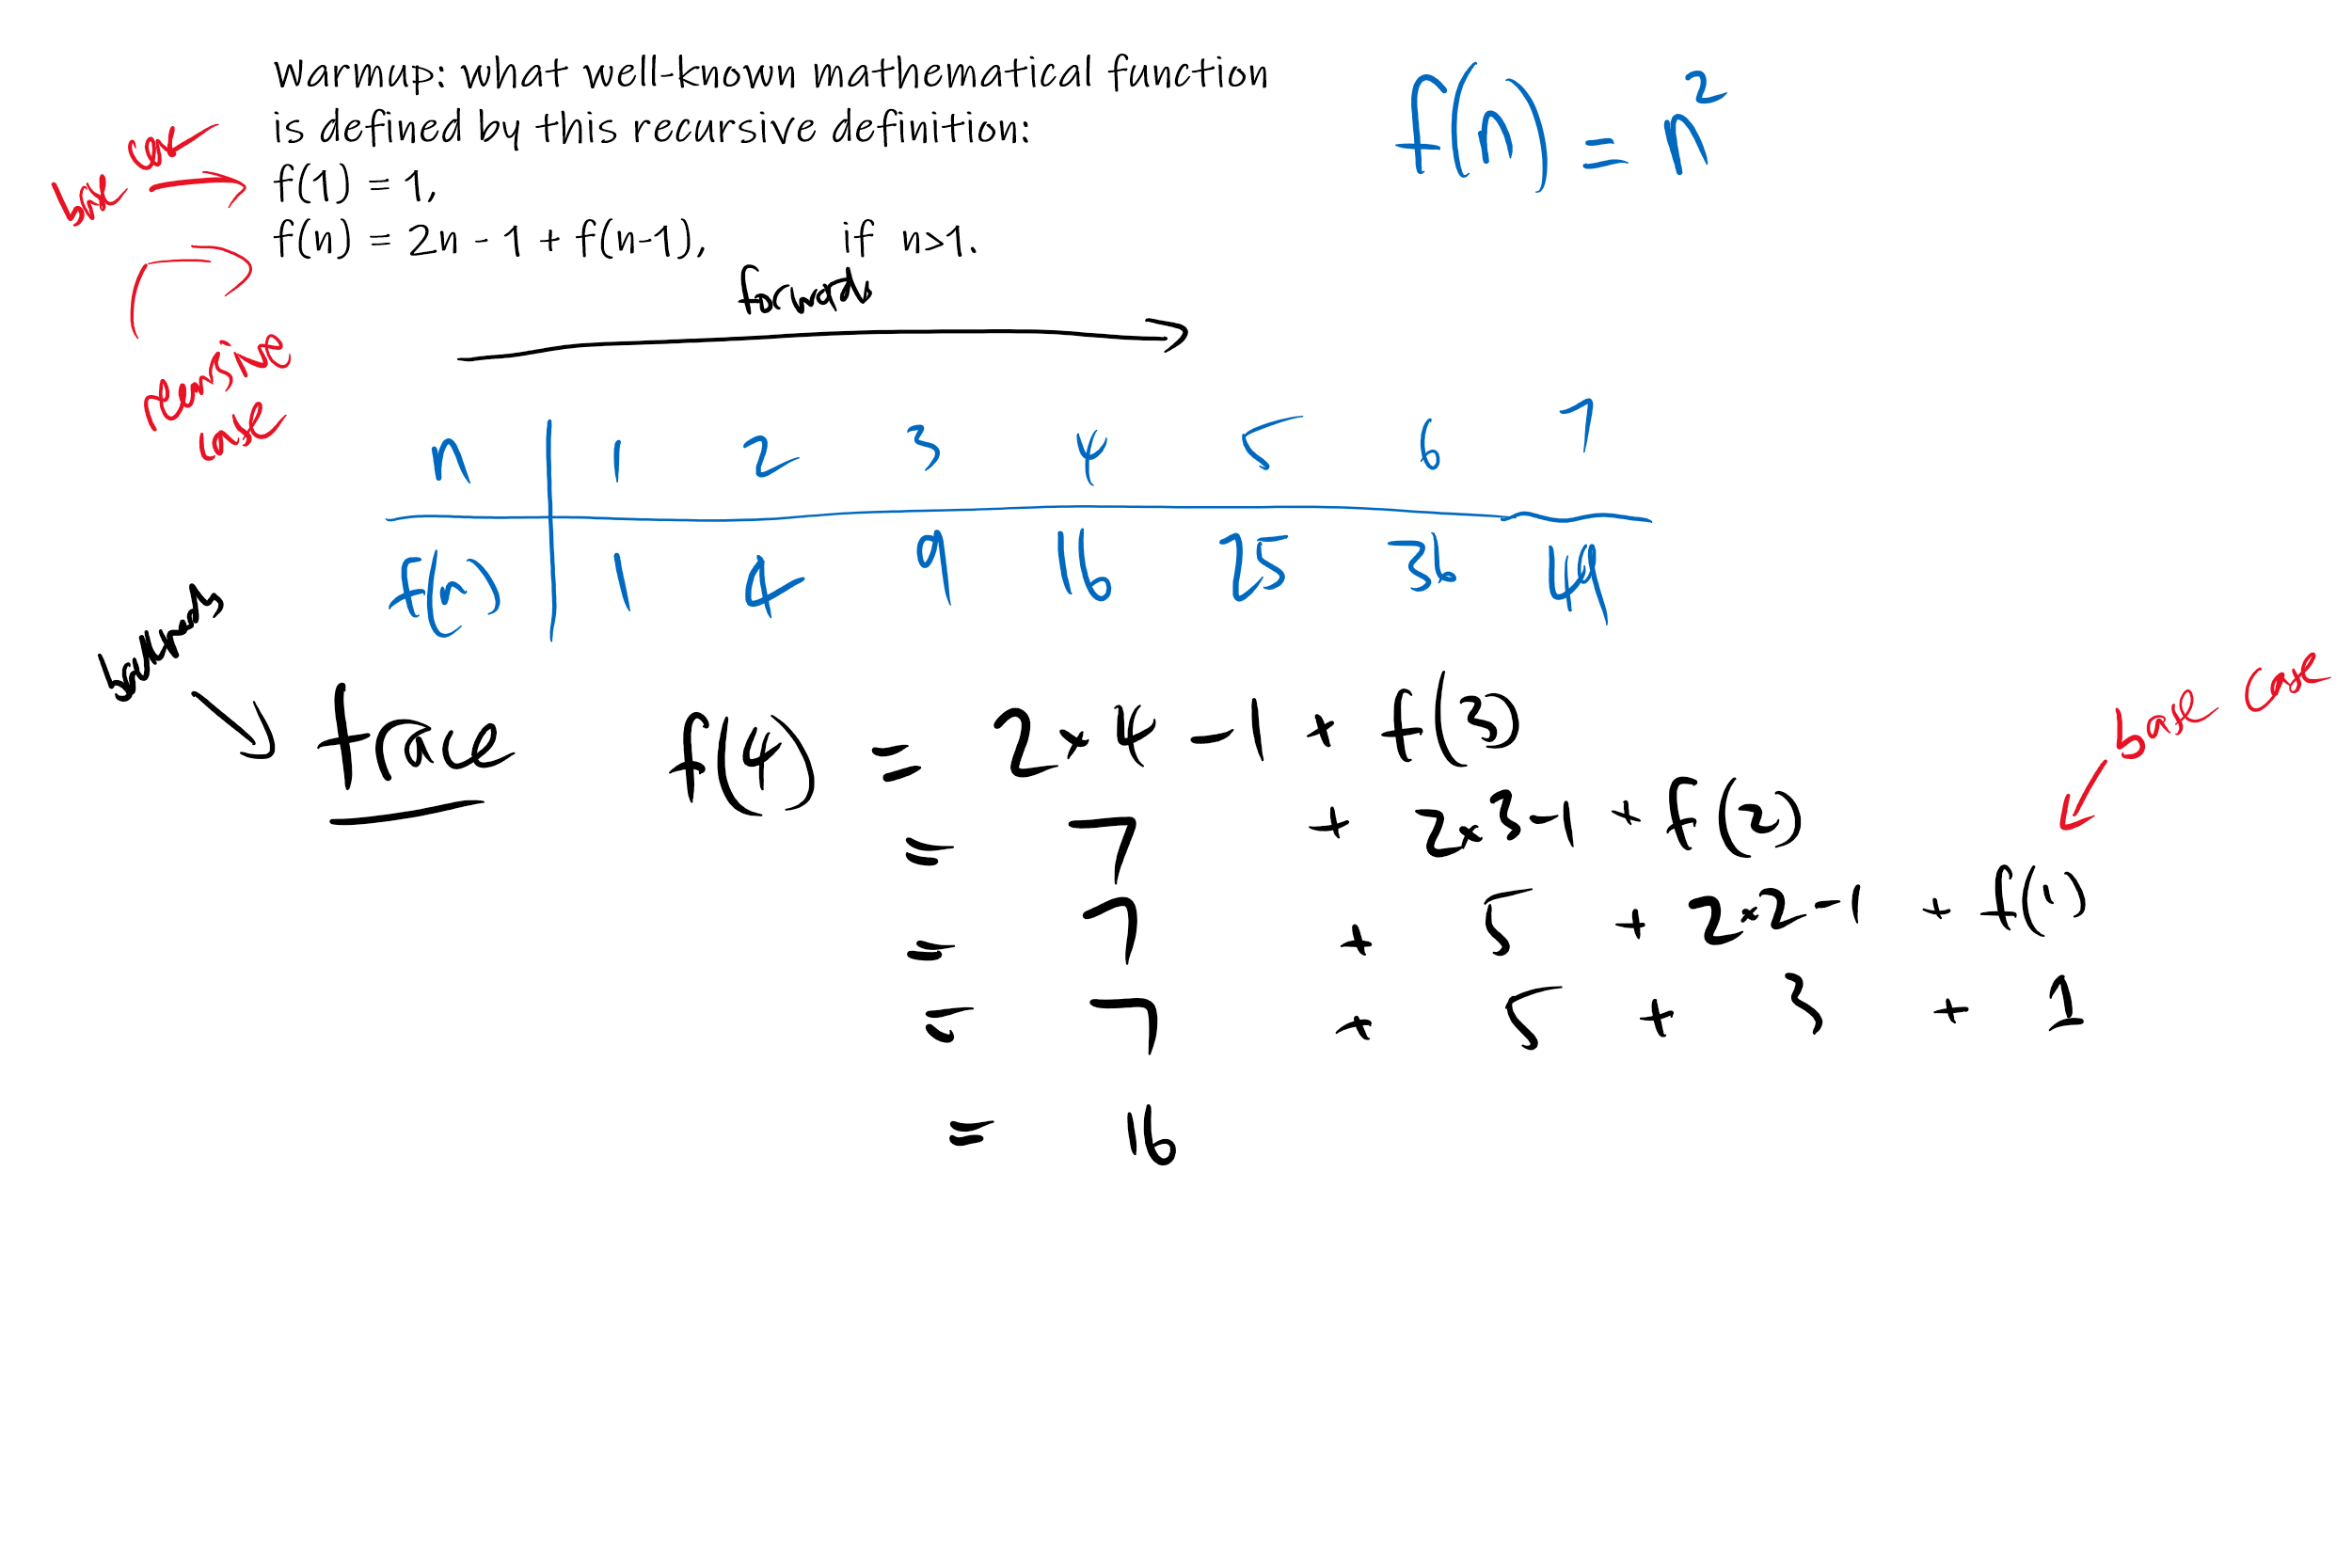 warmup: what well-known mathematical function
is defined by this recursive definition:
f(1) = 1,
f(n) = 2n - 1 + f(n-1), if n>1.
f(n) = n²
base case
recursive
case
forwards
n 1 2 3 4 5 6 7
f(n) 1 4 9 16 25 36 49
backwards
trace
f(4) = 2×4 - 1 + f(3)
= 7 + 2×3-1 + f(2)
= 7 + 5 + 2×2-1 + f(1)
= 7 + 5 + 3 + 1
= 16
base case